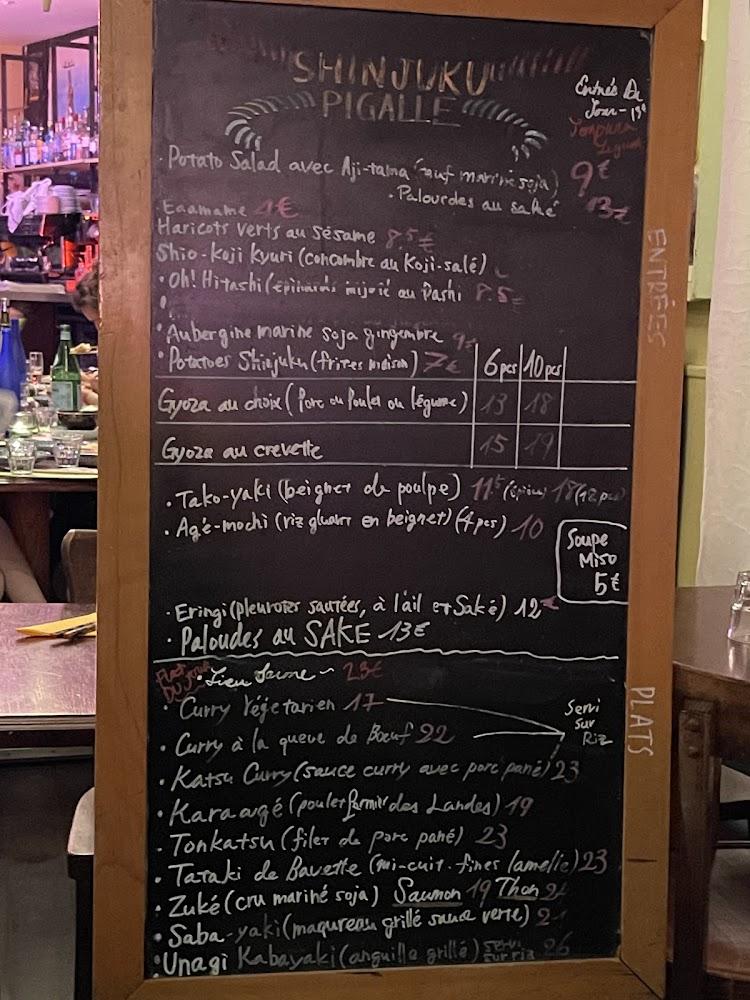 SHINJUKU
PIGALLE
Entrée Du
Jour - 13€
Tempura
Légume
· Potato Salad avec Aji-tama (œuf mariné soja) 9€
· Palourdes au saké 13€
· Edamame 4€
Haricots verts au sésame 8.5€
Shio-Koji Kyuri (concombre au Koji-salé)
· Oh! Hitashi (épinards mijoté au Dashi 8.5€
· Aubergine marine soja gingembre 9€
· Potatoes Shinjuku (frites maison) 7€
6pcs 10pcs
Gyoza au choix (Porc ou Poulet ou légume) 13 18
Gyoza au crevette 15 19
· Tako-yaki (beignet de poulpe) 11.5 (6pièces) 18 (12 pcs)
· Agé-mochi (riz gluant en beignet) (4 pcs) 10
Soupe
Miso
5€
· Eringi (pleurotes sautées, à l'ail et Saké) 12€
· Paloudes au SAKE 13€
ENTRÉES
PLATS
DU JOUR
· Lieu Jaune ~ 23€
· Curry Végétarien 17
· Curry à la queue de Bœuf 22
Servi
Sur
Riz
· Katsu Curry (sauce curry avec porc pané) 23
· Karaagé (poulet fermier des Landes) 19
· Tonkatsu (filet de porc pané) 23
· Tataki de Bavette (mi-cuit. fines lamelle) 23
· Zuké (cru mariné soja) Saumon 19 Thon
· Saba-yaki (maqureau grillé sauce verte)
· Unagi Kabayaki (anguille grillé) servi sur riz 26